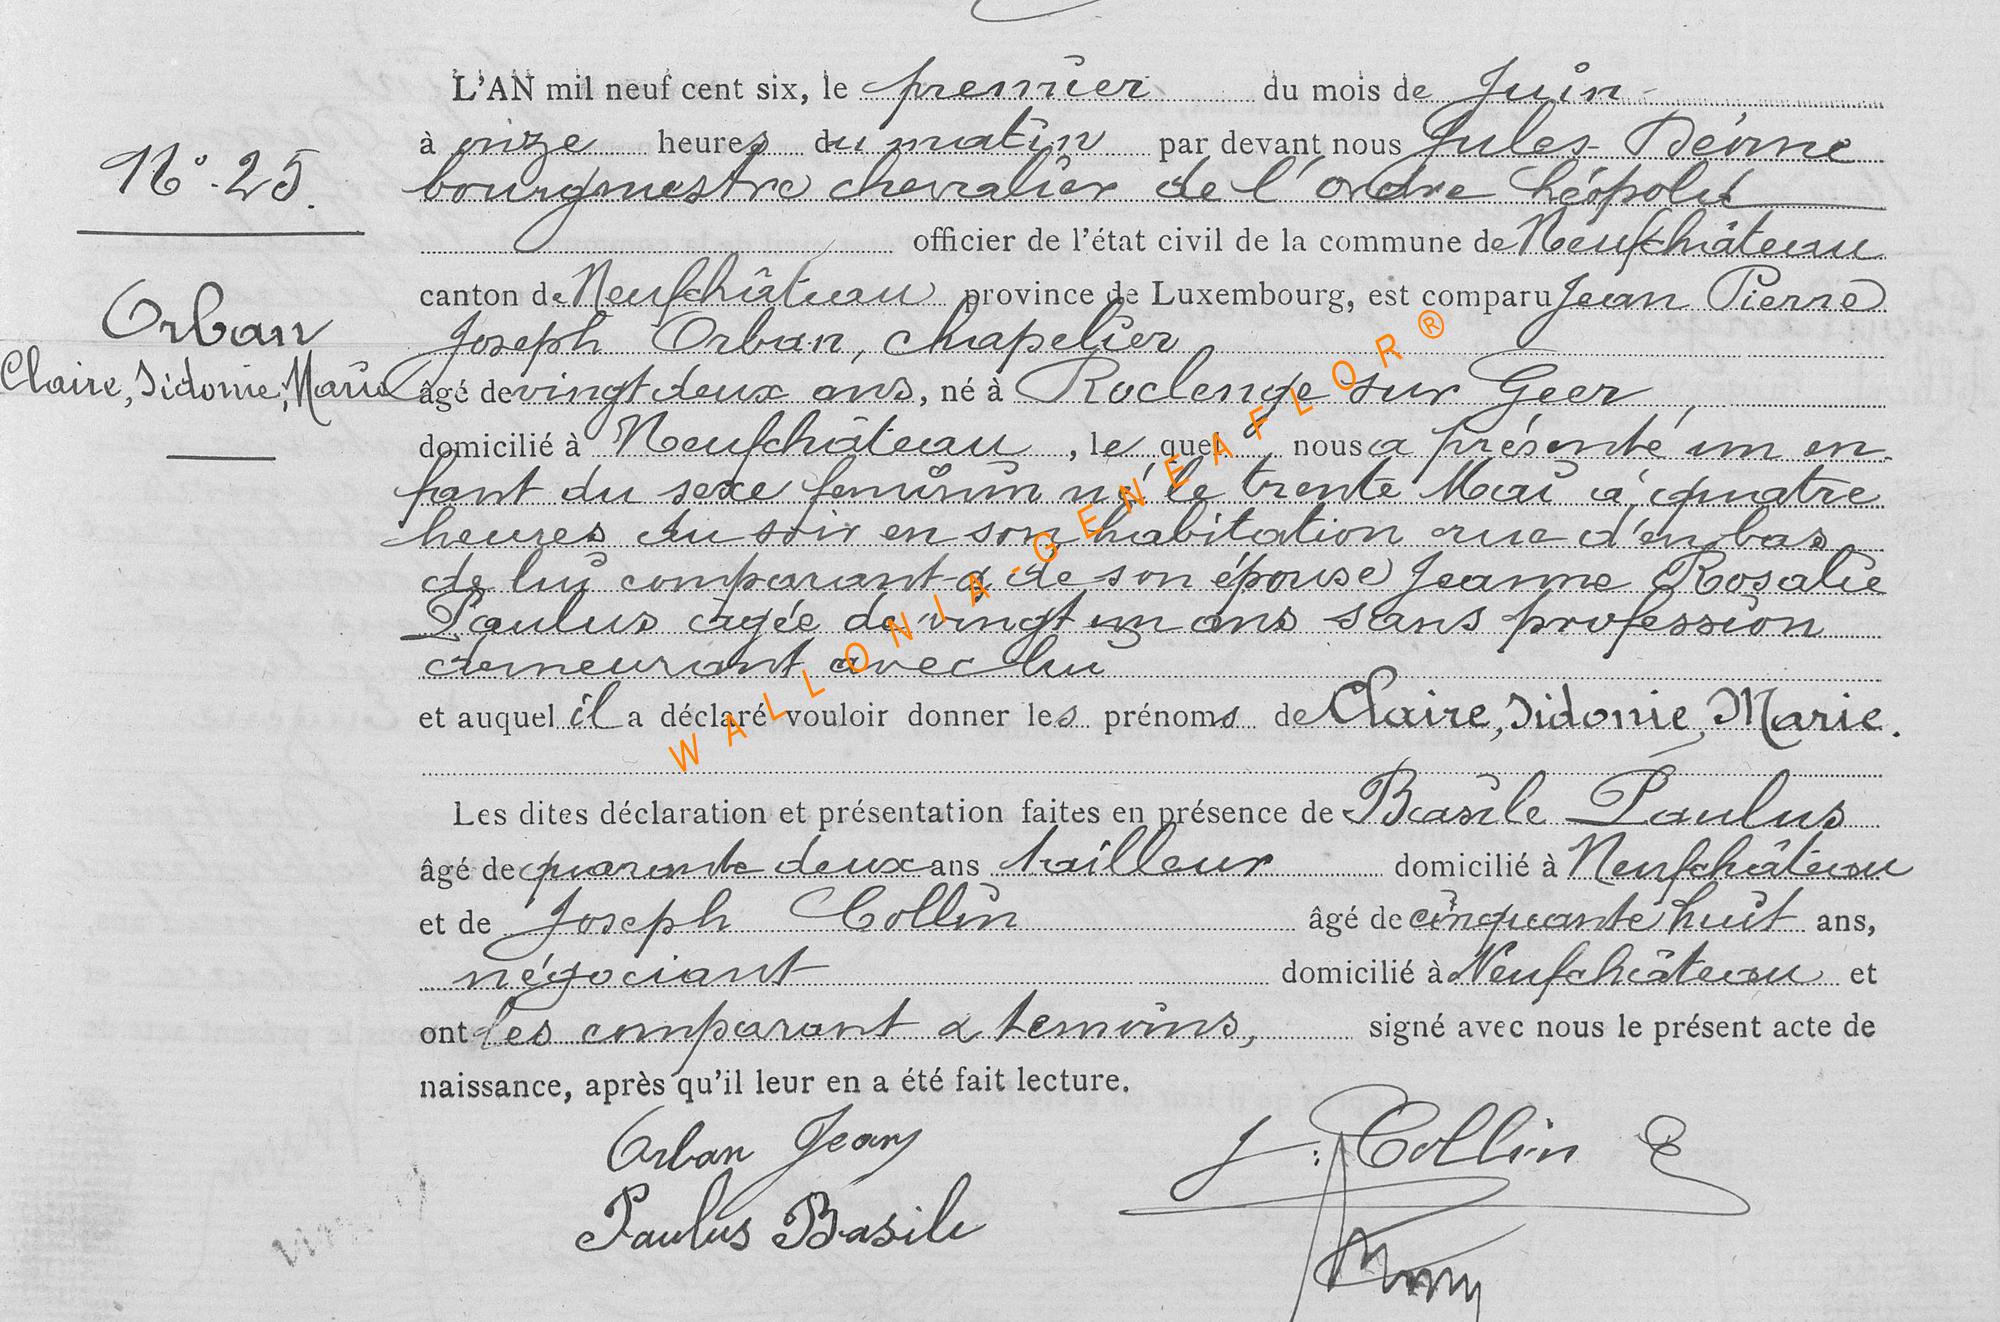 L'AN mil neuf cent six, le premier du mois de Juin
à onze heures du matin par devant nous Jules
N° 25.
bourgmestre chevalier de l'ordre Léopold
officier de l'état civil de la commune de Neufchâteau
canton de Neufchâteau province de Luxembourg, est comparu Jean Pierre
Orban
Joseph Orban, chapelier
Claire, Sidonie, Marie
âgé de vingt deux ans, né à Roclenge sur Geer,
domicilié à Neufchâteau, le quel nous a présenté un en-
fant du sexe feminin né le trente Mai à quatre
heures du soir en son habitation rue d'en bas
de lui comparant & de son épouse Jeanne Rosalie
Paulus agée de vingt un ans sans profession
demeurant avec lui
et auquel il a déclaré vouloir donner les prénoms de Claire, Sidonie, Marie.
Les dites déclaration et présentation faites en présence de Basile Paulus
âgé de quarante deux ans tailleur domicilié à Neufchâteau
et de Joseph Collin âgé de cinquante huit ans,
négociant domicilié à Neufchâteau et
ont les comparant & temoins, signé avec nous le présent acte de
naissance, après qu'il leur en a été fait lecture.
Orban Jean
J. Collin
Paulus Basile
WALLONIA-GENEAFLOR®